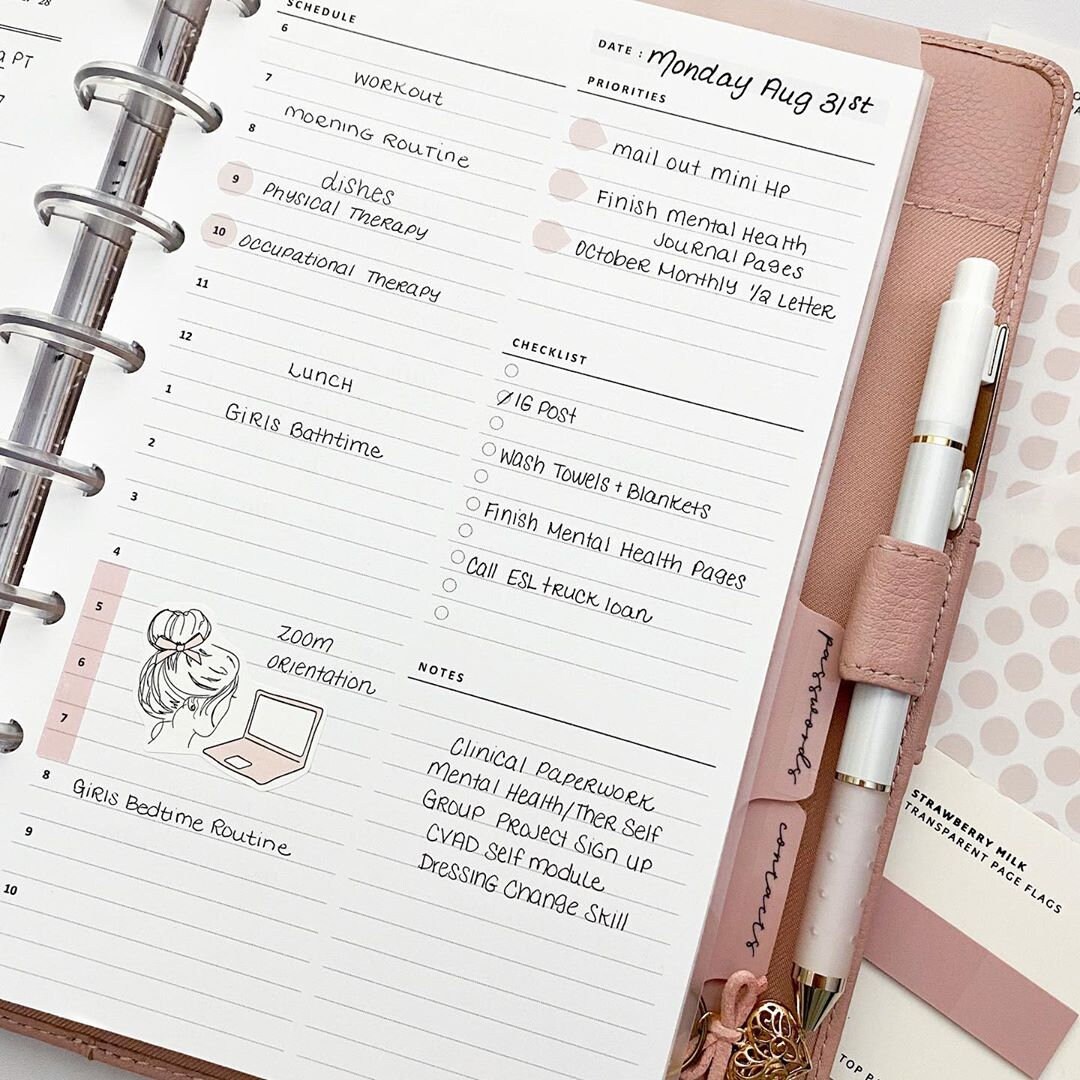 28
a PT
T
7
SCHEDULE
6
7
WORKOUT
MORNING ROUTINE
8
dishes
9
PHYSICAL THERAPY
10
OCCUPATIONAL THERAPY
11
12
LUNCH
1
GIRLS Bathtime
2
3
4
5
ZOOM
ORIENTATION
6
7
8
GIRLS BEDTIME ROUTINE
9
10
DATE : Monday Aug 31st
PRIORITIES
mail out mini HP
Finish Mental Health
Journal Pages
October Monthly 1/2 Letter
CHECKLIST
IG Post
Wash Towels + Blankets
Finish Mental Health Pages
Call ESL truck loan
NOTES
Clinical Paperwork
Mental Health/Ther Self
Group Project Sign up
CVAD Self module
Dressing Change Skill
passwords
contacts
STRAWBERRY MILK
TRANSPARENT PAGE FLAGS